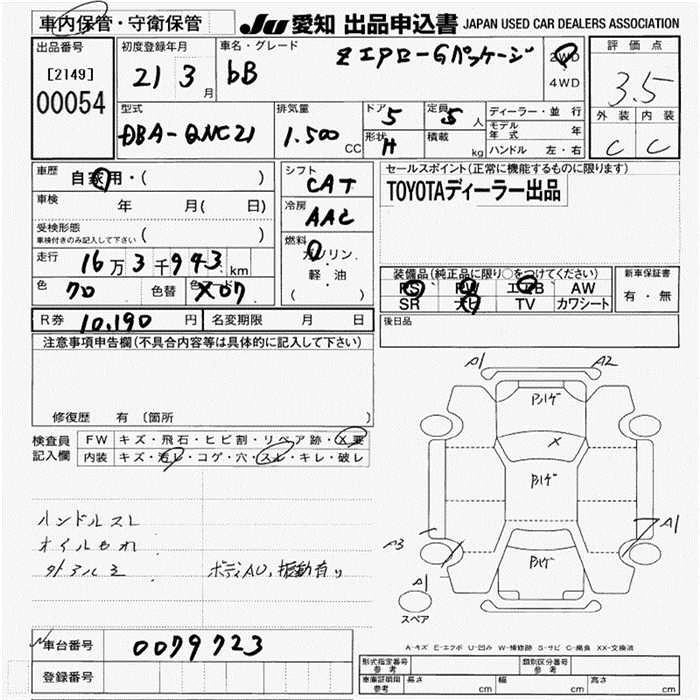 車内保管・守衛保管 JU 愛知 出品申込書 JAPAN USED CAR DEALERS ASSOCIATION
出品番号 [2149] 00054
初度登録年月 21 3 月
車名・グレード bB Z エアロ-Gパッケージ
2WD 4WD
評価点 3.5
外装 内装
C C
型式 DBA-QNC21
排気量 1.500 CC
ドア 5 定員 5 人
形状 H 積載 kg
ディーラー・並行
モデル年式 年
ハンドル 左・右
車歴 自家用・( )
車検 年 月( 日)
受検形態 車検付きのみ記入して下さい ( )
走行 16万3千943km
色 クロ 色替 カラーNo X07
シフト CAT
冷房 AAC
燃料 ガソリン・軽油 ( )
セールスポイント(正常に機能するものに限ります)
TOYOTAディーラー出品
装備品(純正品に限り○をつけてください)
PS PW エアB AW
SR ナビ TV カワシート
新車保証書 有・無
R券 10,190 円 名変期限 月 日
後日品
注意事項申告欄(不具合内容等は具体的に記入して下さい)
修復歴 有 〔箇所 〕
検査員記入欄
FW キズ・飛石・ヒビ割・リペア跡・X要
内装 キズ・汚レ・コゲ・穴・スレ・キレ・破レ
ハンドルスレ
オイルもれ
ボディAU,振動有り
A1 A2
X
A3 A1
A1
スペア
A-キズ E-エクボ U-凹み W-補修跡 S-サビ C-腐食 XX-交換済
車台番号 0079723
登録番号
形式指定番号 参考 類別区分番号 参考
車庫証明書 参考 長さ cm 幅 cm 高さ cm